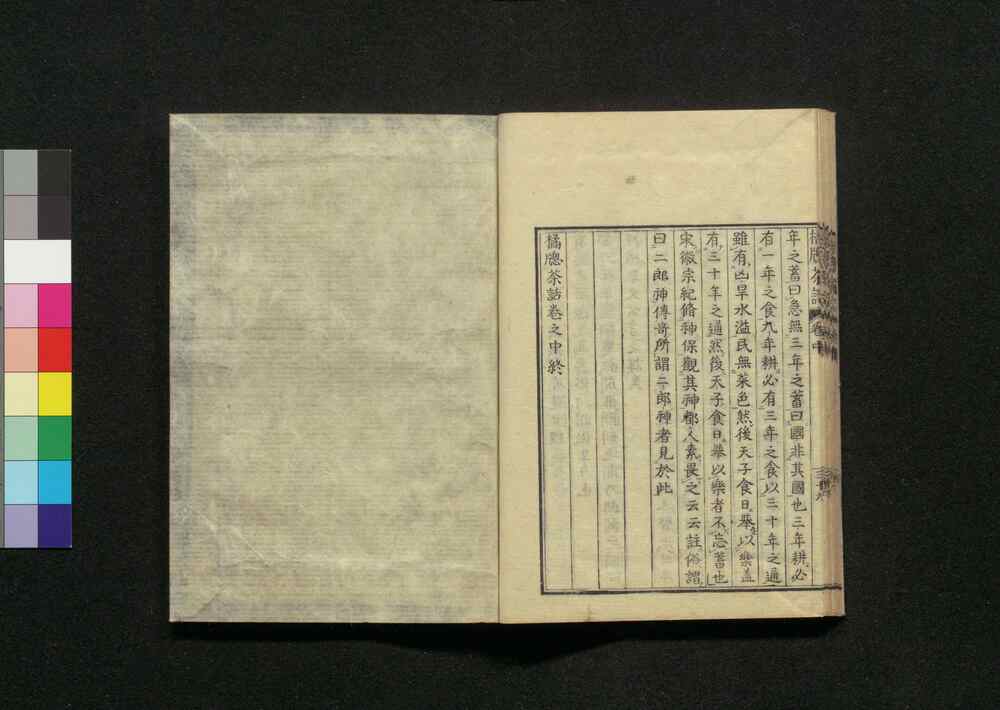 年之蓄曰急無三年之蓄曰國非其國也三年耕必
有一年之食九年耕必有三年之食以三十年之通
雖有凶旱水溢民無菜色然後天子食日舉以樂蓋
有三十年之通然後天子食日舉以樂者不忘蓄也
宋徽宗紀脩神保觀其神都人素畏之云云註俗謂
曰二郎神傳奇所謂二郎神者見於此
橘牕茶話卷之中終